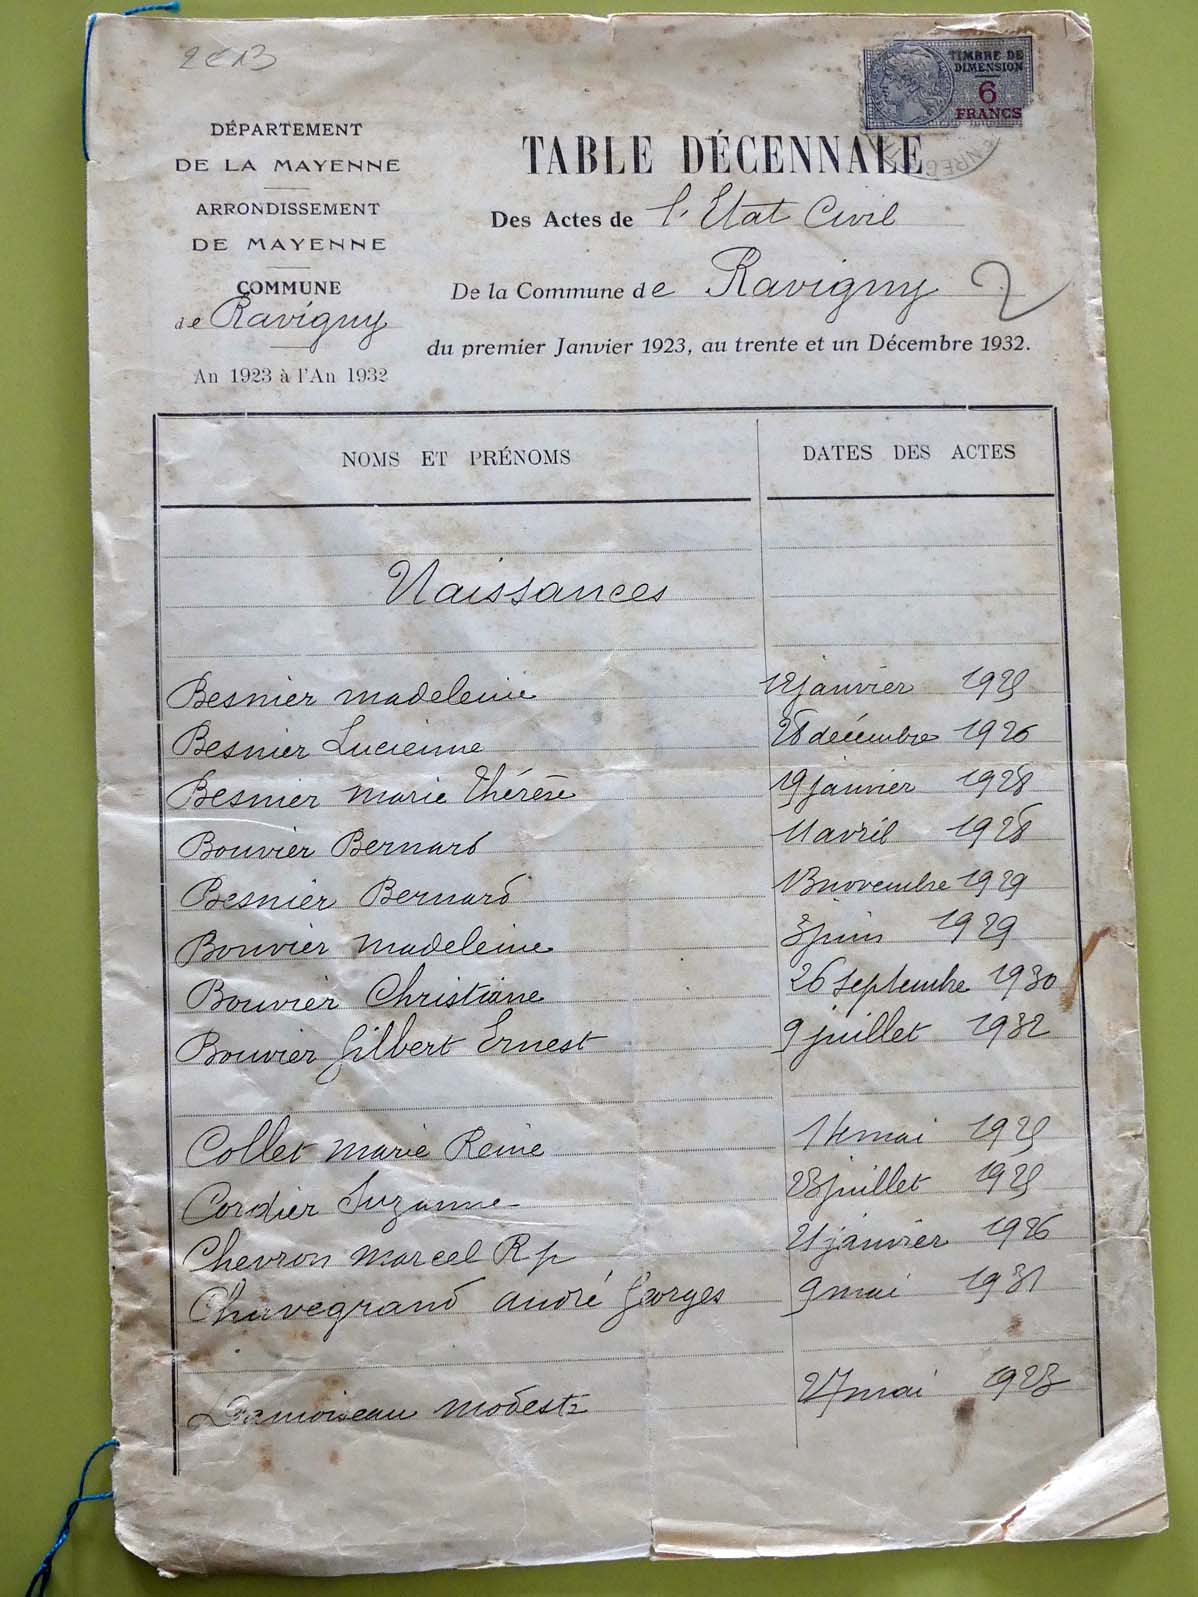 2 E 13
TIMBRE DE
DIMENSION
6
FRANCS
DÉPARTEMENT
DE LA MAYENNE
ARRONDISSEMENT
DE MAYENNE
COMMUNE
de Ravigny
An 1923 à l'An 1932
TABLE DÉCENNALE
Des Actes de l'Etat Civil
De la Commune de Ravigny
2
du premier Janvier 1923, au trente et un Décembre 1932.
NOMS ET PRÉNOMS DATES DES ACTES
Naissances
Besnier Madeleine janvier 1925
Besnier Lucienne 28 décembre 1926
Besnier Marie Thérèse 19 janvier 1928
Bouvier Bernard 11 avril 1928
Besnier Bernard 13 novembre 1929
Bouvier Madeleine 3 juin 1929
Bouvier Christiane 26 septembre 1930
Bouvier Gilbert Ernest 9 juillet 1932
Collet Marie Reine 14 mai 1925
Cordier Suzanne 23 juillet 1925
Chevron Marcel 21 janvier 1926
Chauvegrand André Georges 9 mai 1931
Damoiseau Modeste 27 mai 1923